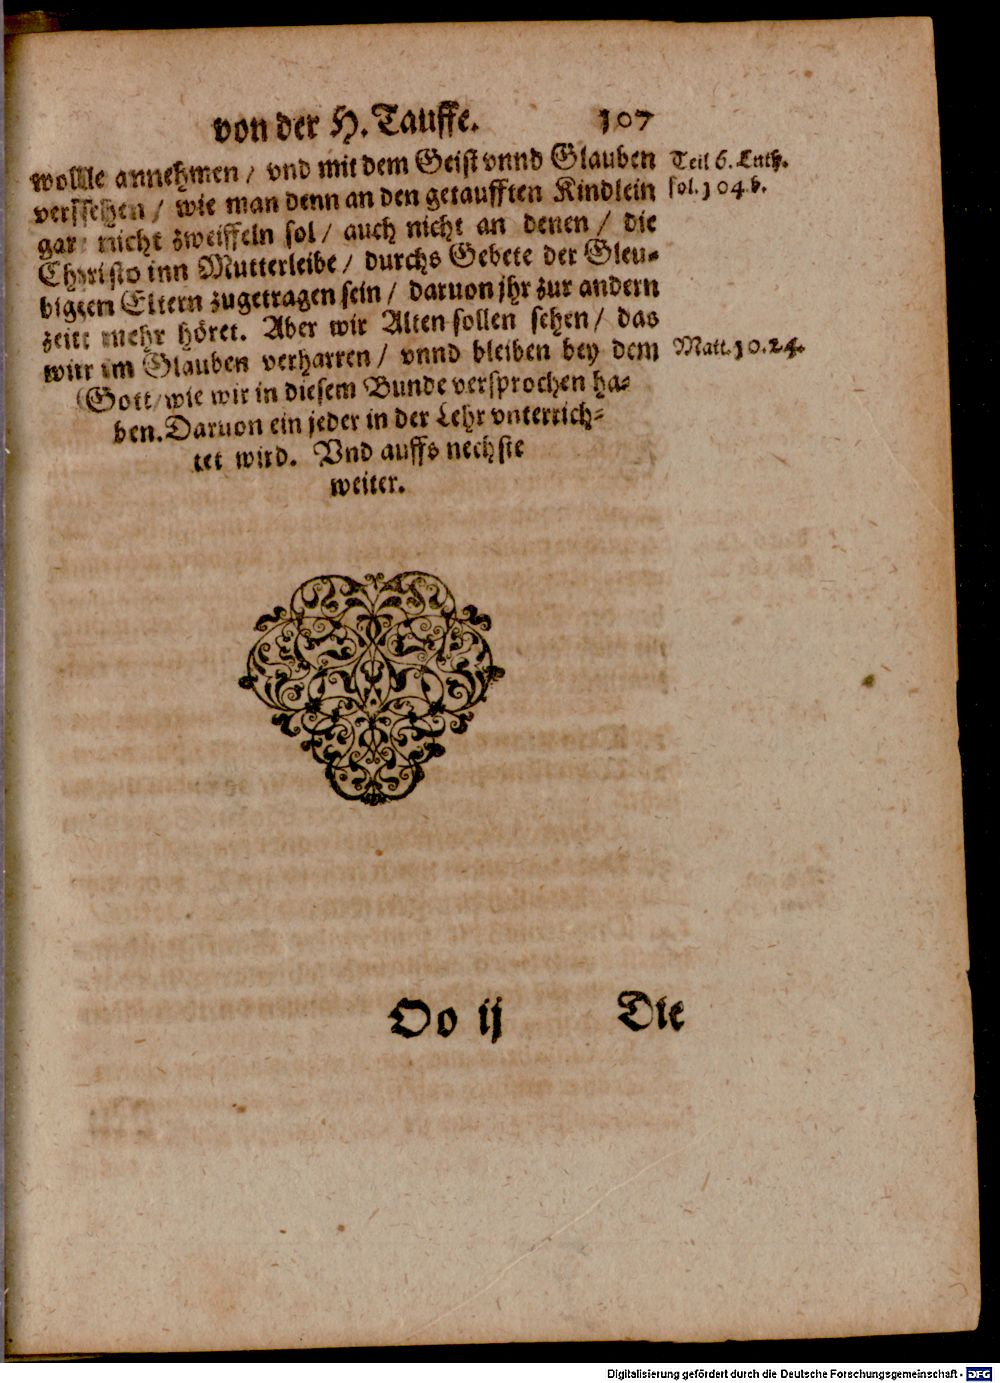 von der H. Tauffe. 107
wollle annehmen / vnd mit dem Geist vnnd Glauben
verssehen / wie man denn an den getaufften Kindlein
gar nicht zweiffeln sol / auch nicht an denen / die
Christo inn Mutterleibe / durchs Gebete der Gleu⸗
bigen Eltern zugetragen sein / daruon jhr zur andern
zeitt mehr höret. Aber wir Alten sollen sehen / das
wirr im Glauben verharren / vnnd bleiben bey dem
Gott / wie wir in diesem Bunde versprochen ha⸗
ben. Daruon ein jeder in der Lehr vnterrich⸗
tet wird. Vnd auffs nechste
weiter.
Teil 6. Luth.
fol. 104. b.
Matt. 10. 24.
Oo ij Die
Digitalisierung gefördert durch die Deutsche Forschungsgemeinschaft - DFG